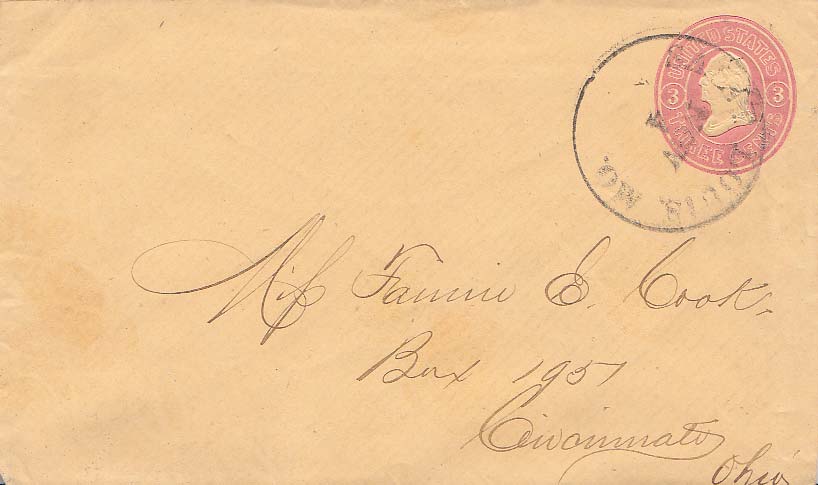 UNITED STATES
3 3
THREE CENTS
LOUIS MO.
Miss Fannie E. Cook.
Box 1951
Cincinnati
Ohio